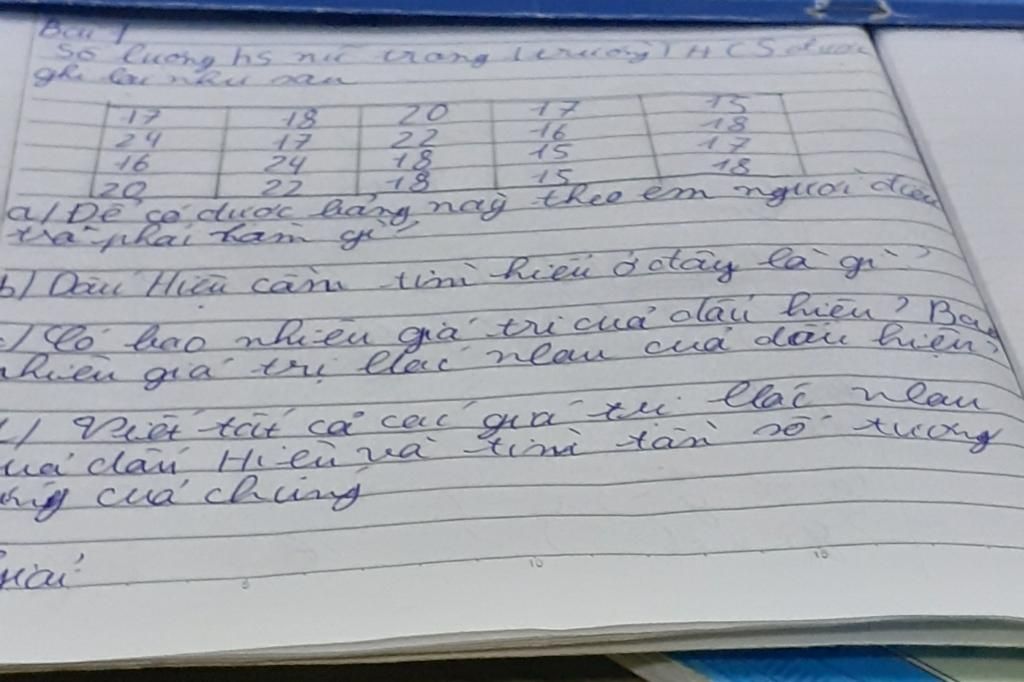 Bài 1
Số lượng hs nữ trong 1 trường THCS được
ghi lại như sau
17 18 20 17 15
24 17 22 16 18
16 24 18 15 17
20 22 18 15 18
a/ Để có được bảng này theo em người điều
tra phải làm gì?
b/ Dấu Hiệu cần tìm hiểu ở đây là gì?
c/ Có bao nhiêu giá trị của dấu hiệu? Bao
nhiêu giá trị khác nhau của dấu hiệu?
Viết tất cả các giá trị khác nhau
của dấu Hiệu và tìm tần số tương
ứng của chúng
Giải
5 10 15